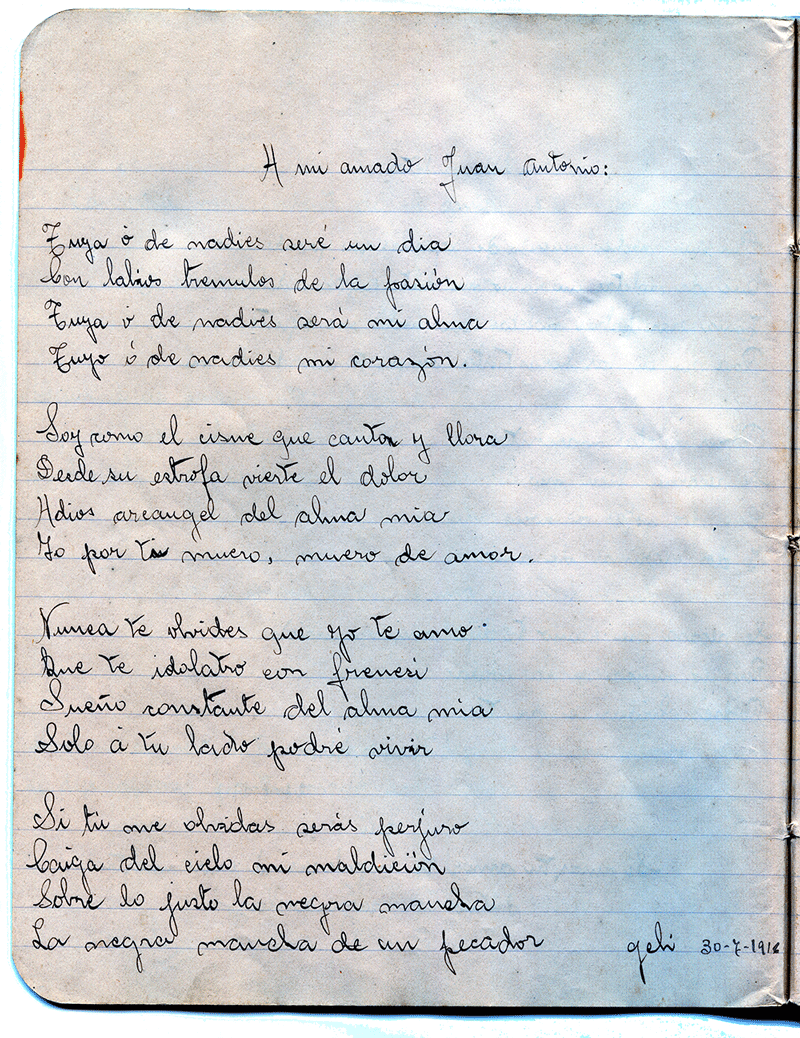 A mi amado Juan Antonio:
Tuya ó de nadies seré un dia
Con labios tremulos de la pasión
Tuya ó de nadies será mi alma
Tuyo ó de nadies mi corazón.
Soy como el cisne que canta y llora
Desde su estrofa vierte el dolor
Adios arcangel del alma mia
Yo por ti muero, muero de amor.
Nunca te olvides que yo te amo
Que te idolatro con frenesi
Sueño constante del alma mia
Solo á tu lado podré vivir
Si tú me olvidas serás perjuro
Caiga del cielo mi maldición
Sobre lo justo la negra mancha
La negra mancha de un pecador
geli 30-7-191